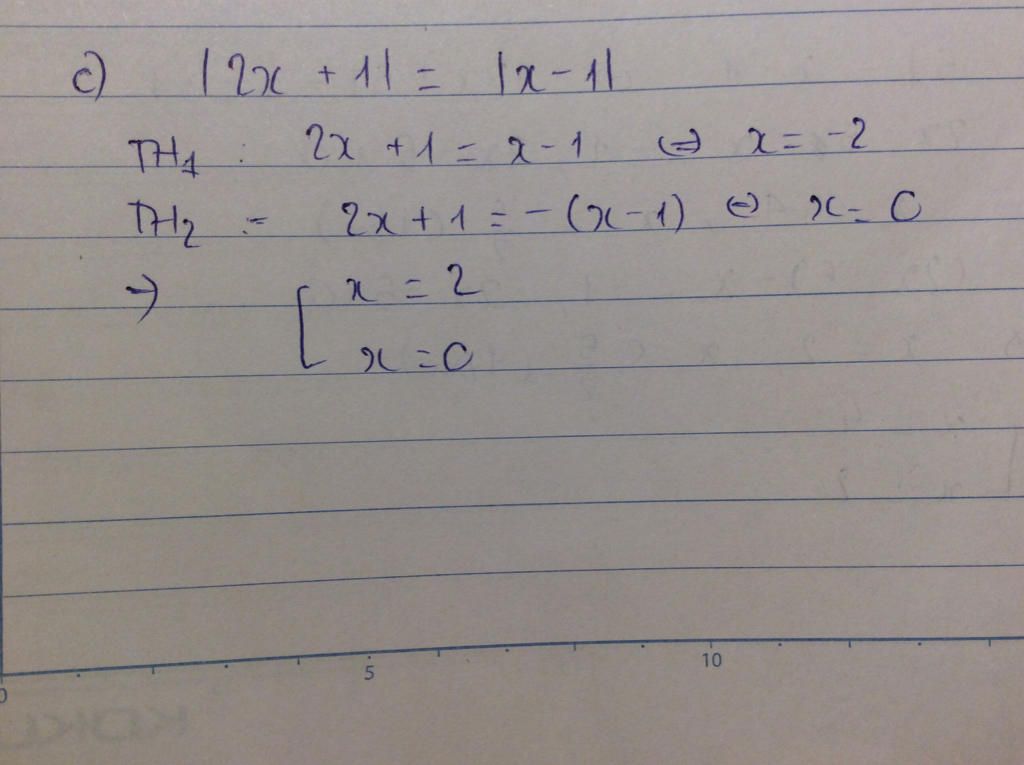 c) |2x + 1| = |x - 1|
TH1 : 2x + 1 = x - 1 ⇔ x = -2
TH2 : 2x + 1 = -(x - 1) ⇔ x = 0
→ [ x = 2
x = 0
0 5 10